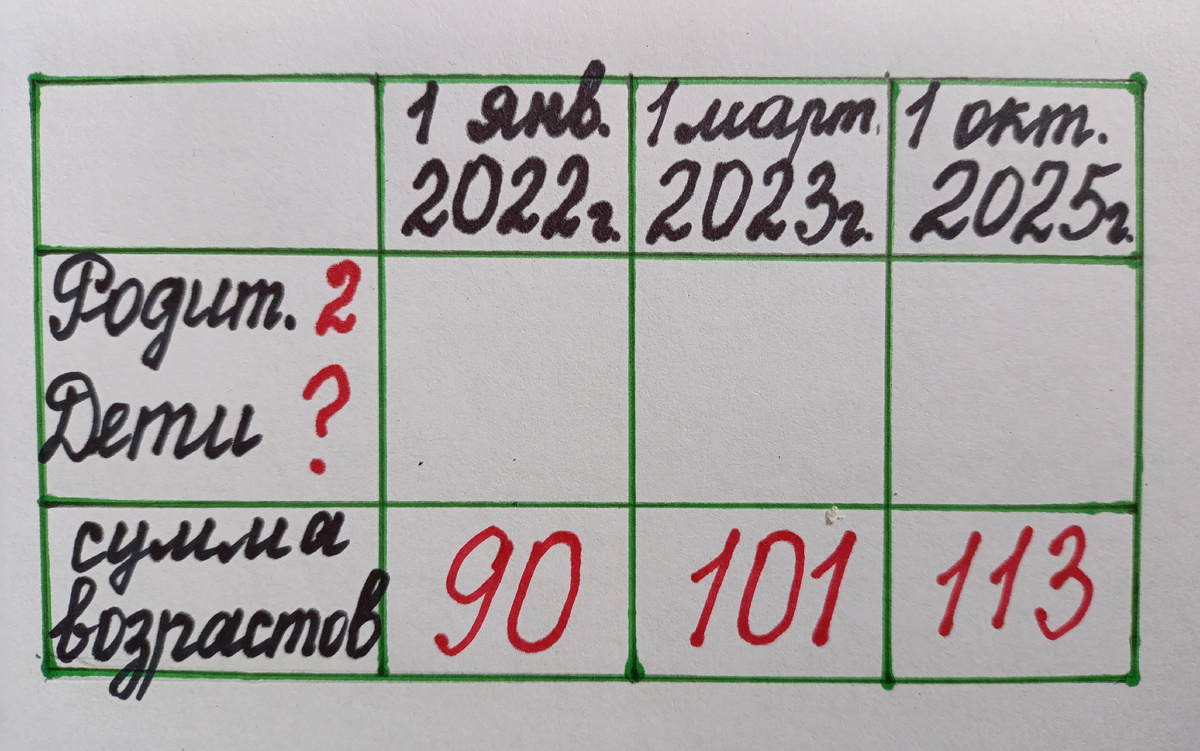 1 янв.
2022г.
1 март.
2023г.
1 окт.
2025г.
Родит. 2
Дети ?
сумма
возрастов
90
101
113